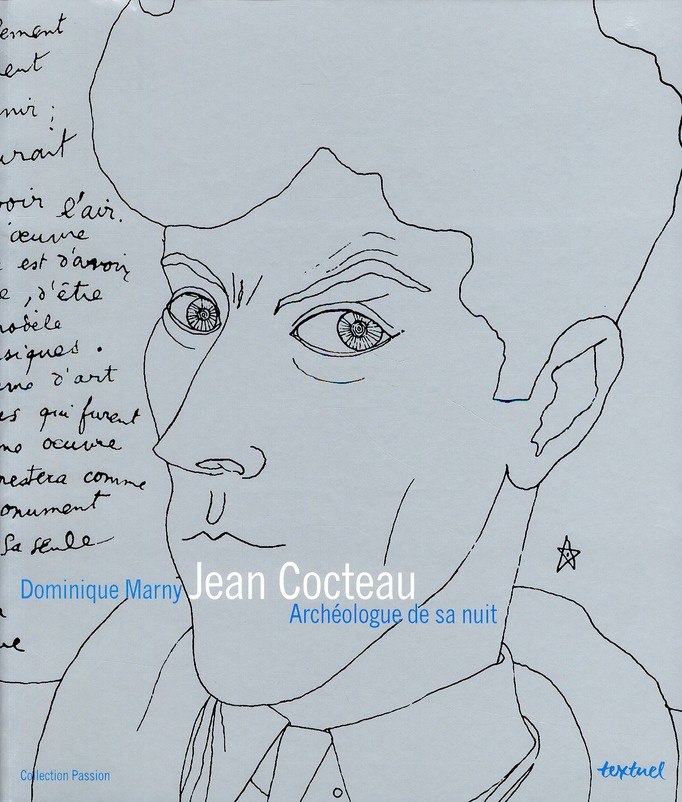 ment
ent
nir ;
urait
voir l'air.
œuvre
est d'avoir
, d'être
modèle
siques.
d'art
qui furent
œuvre
restera comme
onument
Sa seule
Dominique Marny
Jean Cocteau
Archéologue de sa nuit
Collection Passion
textuel